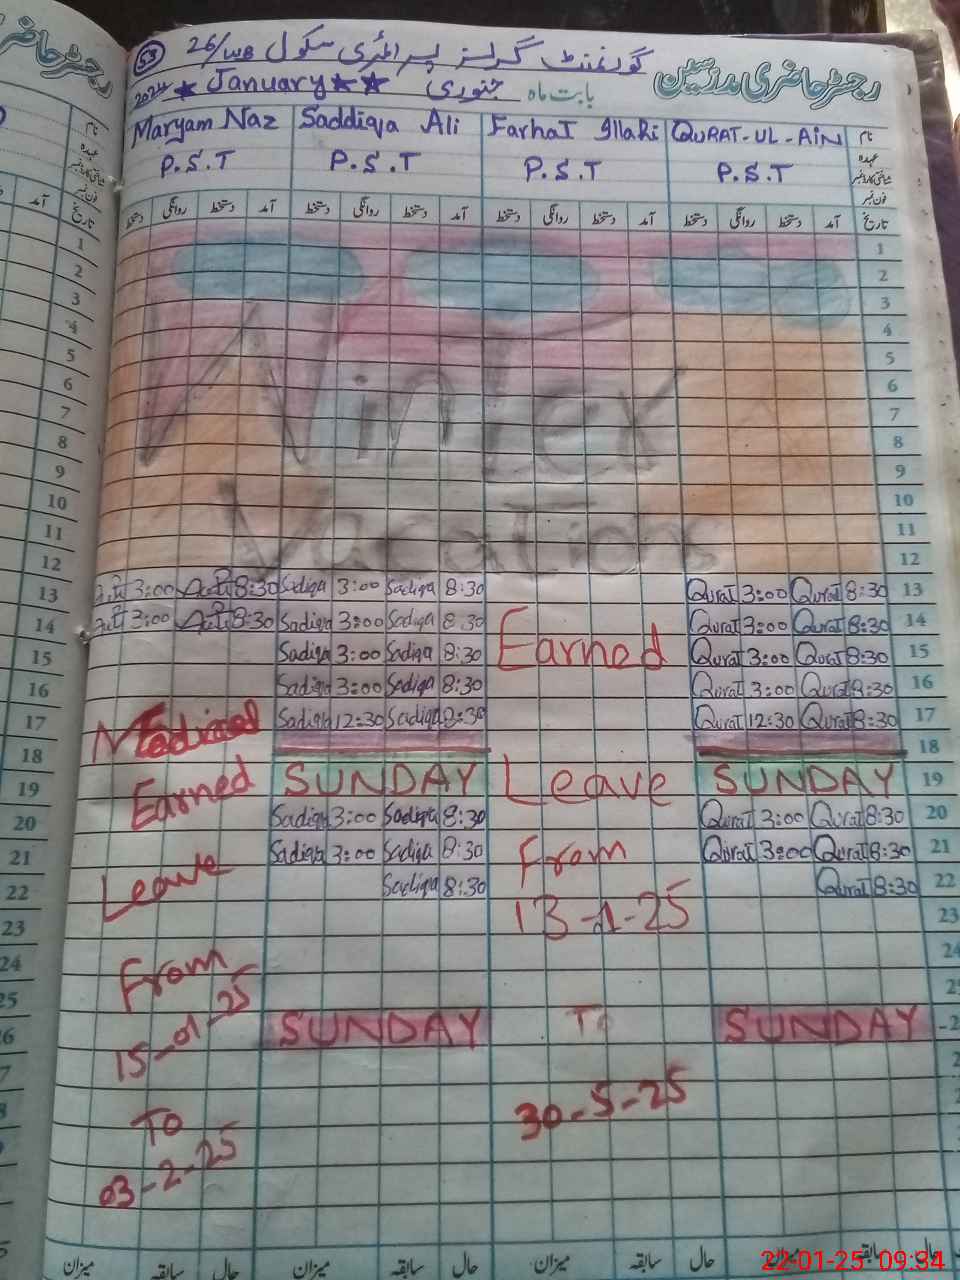 رجسٹر حاضری
53 گورنمنٹ گرلز پرائمری سکول 26/WB
رجسٹر حاضری مدرسین
2024 ★ January ★★ جنوری بابت ماہ
Maryam Naz Saddiqa Ali Farhat Illahi QURAT-UL-AiN نام
P.S.T P.S.T P.S.T P.S.T عہدہ
شناختی کارڈ نمبر
فون نمبر
تاریخ آمد دستخط روانگی دستخط آمد دستخط روانگی دستخط آمد دستخط روانگی دستخط آمد دستخط روانگی دستخط تاریخ
1 1
2 2
3 3
4 4
5 5
6 6
7 7
8 8
9 9
10 10
11 11
12 12
Winter
Vacations
13 3:00 8:30 Sadiqa 3:00 Sadiqa 8:30 Qurat 3:00 Qurat 8:30 13
14 3:00 8:30 Sadiqa 3:00 Sadiqa 8:30 Qurat 3:00 Qurat 8:30 14
15 Sadiqa 3:00 Sadiqa 8:30 Earned Qurat 3:00 Qurat 8:30 15
16 Sadiqa 3:00 Sadiqa 8:30 Qurat 3:00 Qurat 8:30 16
17 Sadiqa 12:30 Sadiqa 8:30 Qurat 12:30 Qurat 8:30 17
18 18
19 Earned SUNDAY Leave SUNDAY 19
20 Sadiqa 3:00 Sadiqa 8:30 Qurat 3:00 Qurat 8:30 20
21 Sadiqa 3:00 Sadiqa 8:30 From Qurat 3:00 Qurat 8:30 21
22 Leave Sadiqa 8:30 Qurat 8:30 22
23 13-1-25 23
24 From 24
25 15-01-25
26 SUNDAY To SUNDAY
To 30-5-25
03-2-25
میزان سابقہ حال میزان سابقہ حال میزان سابقہ حال میزان سابقہ حال
22-01-25 09:34